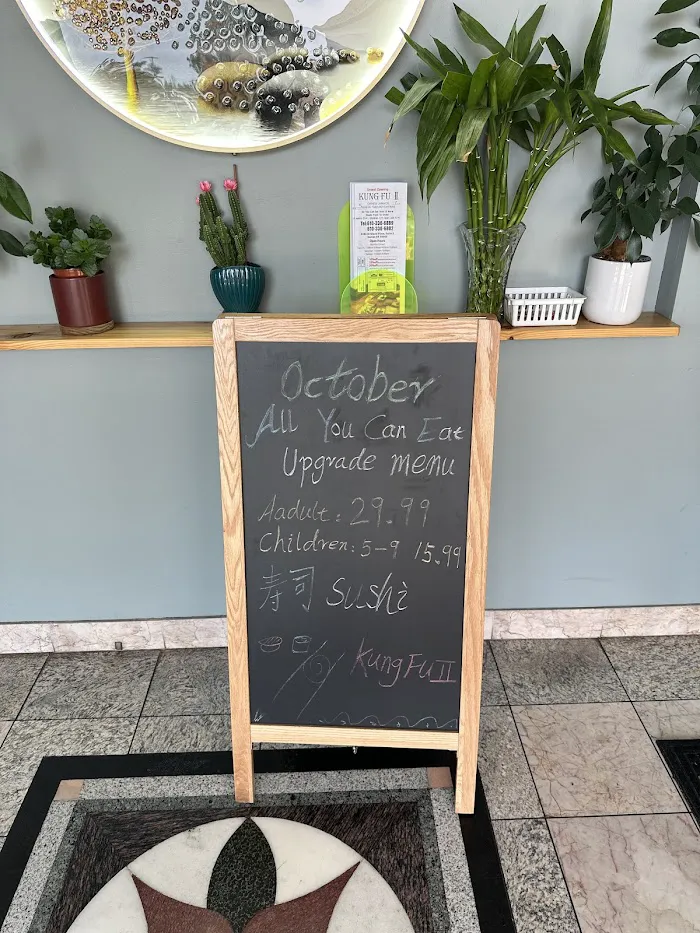 KUNG FU II
October
All You Can Eat
Upgrade menu
Aadult: 29.99
Children: 5-9 15.99
寿司 Sushi
Kung Fu II